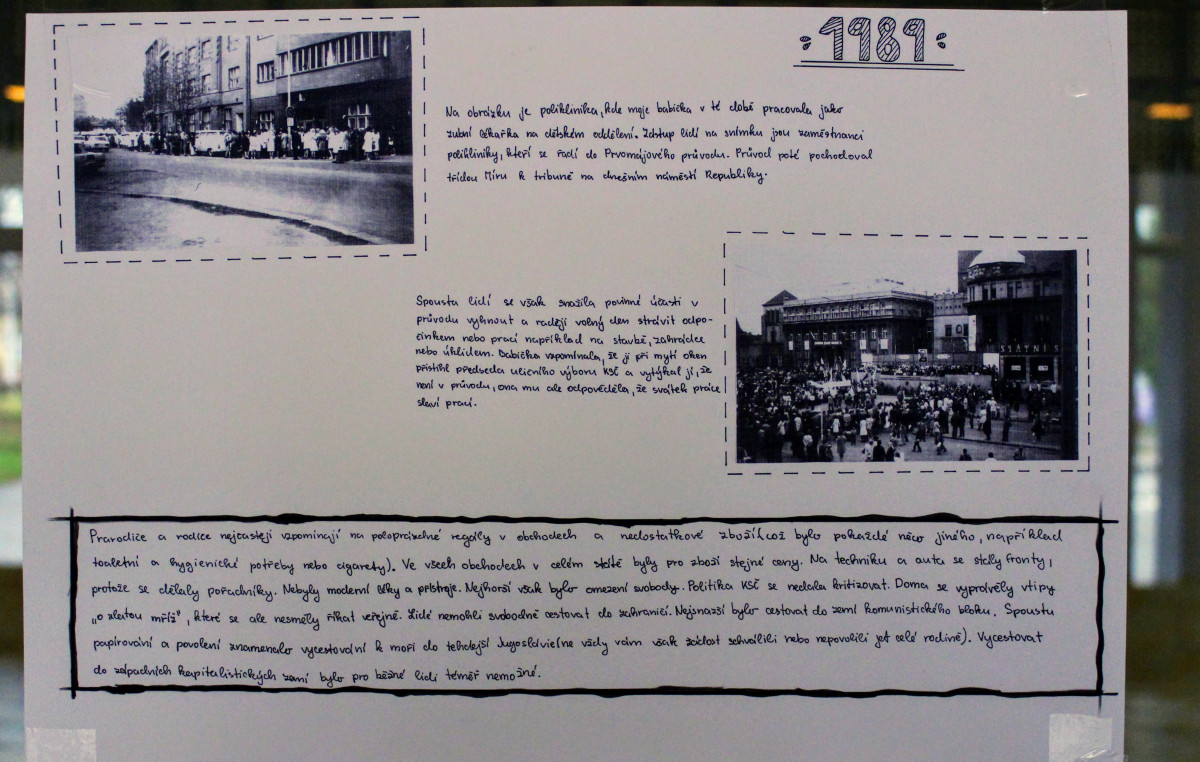 1989
Na obrázku je poliklinika, kde moje babička v té době pracovala jako
zubní lékařka na dětském oddělení. Zástup lidí na snímku jsou zaměstnanci
polikliniky, kteří se řadí do Prvomájového průvodu. Průvod poté pochodoval
třídou Míru k tribuně na dnešním náměstí Republiky.
Spousta lidí se však snažila povinné účasti v
průvodu vyhnout a raději volný den strávit odpo-
činkem nebo prací například na stavbě, zahrádce
nebo úklidem. Babička vzpomínala, že ji při mytí oken
přistihl předseda uličního výboru KSČ a vytýkal jí, že
není v průvodu, ona mu ale odpověděla, že svátek práce
slaví prací.
STÁTNÍ S
Prarodiče a rodiče nejčastěji vzpomínají na poloprázdné regály v obchodech a nedostatkové zboží(což bylo pokaždé něco jiného, například
toaletní a hygienické potřeby nebo cigarety). Ve všech obchodech v celém státě byly pro zboží stejné ceny. Na techniku a auta se stály fronty,
protože se dělaly pořadníky. Nebyly moderní léky a přístroje. Nejhorší však bylo omezení svobody. Politika KSČ se nedala kritizovat. Doma se vyprávěly vtipy
„o zlatou mříž", které se ale nesměly říkat veřejně. Lidé nemohli svobodně cestovat do zahraničí. Nejsnazší bylo cestovat do zemí komunistického bloku. Spoustu
papírování a povolení znamenalo vycestování k moři do tehdejší Jugoslávie(ne vždy vám však žádost schválili nebo nepovolili jet celé rodině). Vycestovat
do západních kapitalistických zemí bylo pro běžné lidi téměř nemožné.